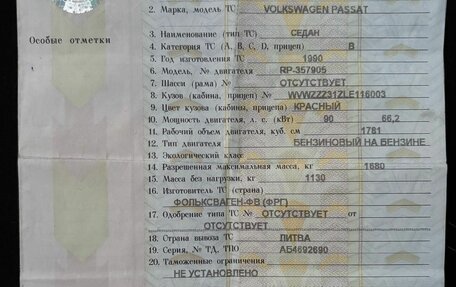 2. Марка, модель ТС VOLKSWAGEN PASSAT
Особые отметки
3. Наименование (тип ТС) СЕДАН
4. Категория ТС (А, В, С, D, прицеп) B
5. Год изготовления ТС 1990
6. Модель, № двигателя RP-357905
7. Шасси (рама) № ОТСУТСТВУЕТ
8. Кузов (кабина, прицеп) № WVWZZZ31ZLE116003
9. Цвет кузова (кабины, прицепа) КРАСНЫЙ
10. Мощность двигателя, л. с. (кВт) 90 66,2
11. Рабочий объем двигателя, куб. см 1781
12. Тип двигателя БЕНЗИНОВЫЙ НА БЕНЗИНЕ
13. Экологический класс
14. Разрешенная максимальная масса, кг 1680
15. Масса без нагрузки, кг 1130
16. Изготовитель ТС (страна)
ФОЛЬКСВАГЕН-ФВ (ФРГ)
17. Одобрение типа ТС № ОТСУТСТВУЕТ от
ОТСУТСТВУЕТ
18. Страна вывоза ТС ЛИТВА
19. Серия, № ТД, ТПО АБ4692690
20. Таможенные ограничения
НЕ УСТАНОВЛЕНО